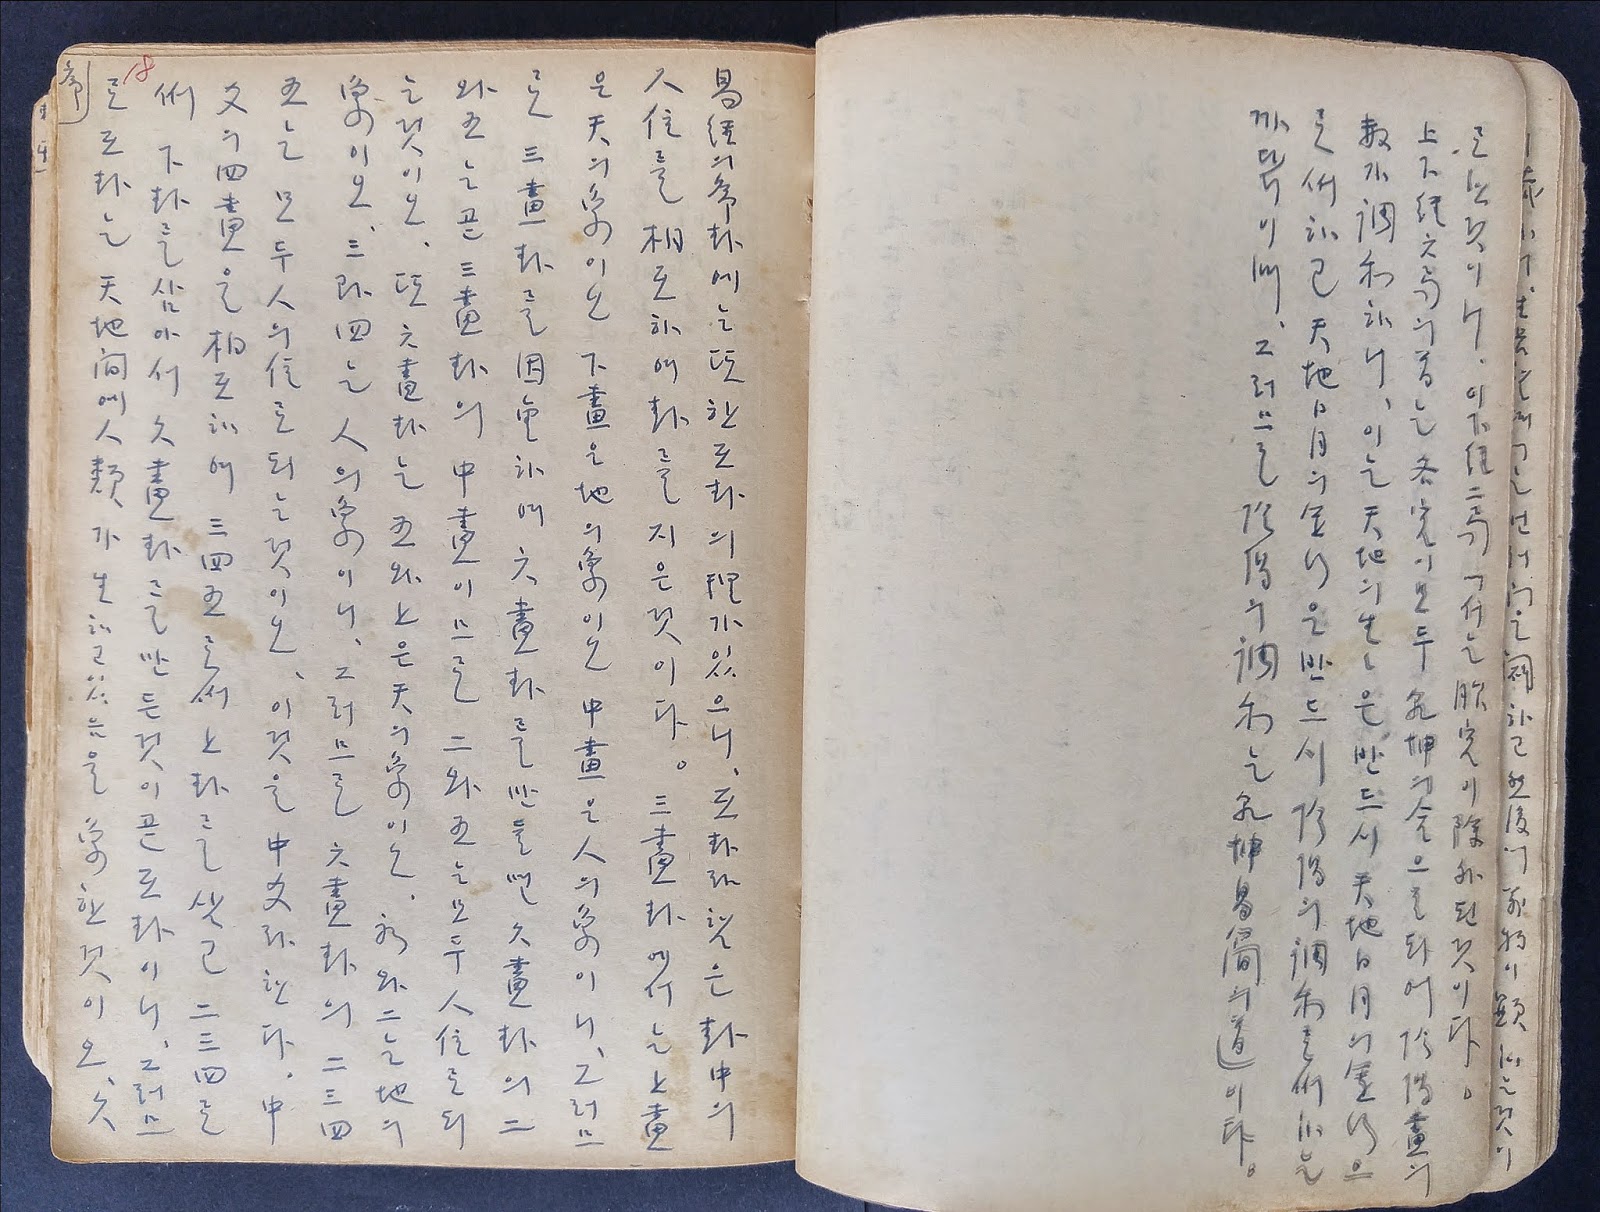 로된것이니, 이下經二
上下經六의는 各이모두 乾坤의合으로되어 陰陽畫의
數가調和하니, 이는 天地의生生은반드시 天地日月의運行으
로써하고 天地日月의運行은반드시 陰陽의調和로써하는
까닭이며, 그러므로 陰陽의調和는乾坤易簡의道이다。
序 18
易經의序卦에는또한互卦의理가있으니, 互卦라함은卦中의
人位를相互하여卦를지은것이다。三畫卦에서는上畫
은天의象이오 下畫은地의象이오 中畫은人의象이니, 그러므
로 三畫卦를因重하여 六畫卦를만들면 六畫卦의二
와五는곧三畫卦의中畫이므로 二와五는모두人位로되
는것이오, 또六畫卦는五와上은天의象이오, 初와二는地의
象이오, 三과四는人의象이니, 그러므로 六畫卦의二三四
五는모두人의位로되는것이오, 이것을中爻라한다. 中
爻의四畫을相互하여 三四五로써上卦를삼고二三四로
써 下卦를삼아서 六畫卦를만든것이곧互卦이니, 그러므
로互卦는 天地间에人類가生하고있음을 象한것이오, 六